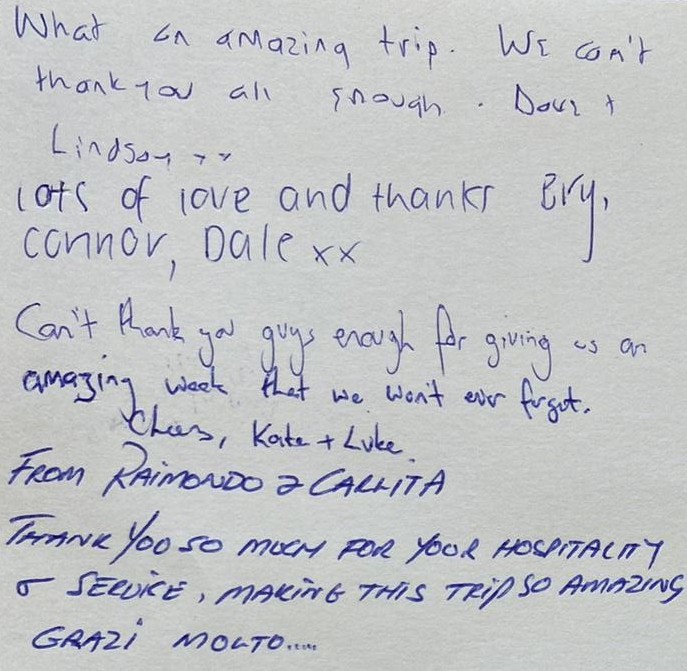 What an amazing trip. We can't
thank you all enough. Dave +
Lindsay xx
Lots of love and thanks Bry,
Connor, Dale xx
Can't thank you guys enough for giving us an
amazing week that we won't ever forget.
Cheers, Kate + Luke.
FROM RAIMONDO & CARLITA
THANK YOO SO MUCH FOR YOUR HOSPITALITY
& SERVICE, MAKING THIS TRIP SO AMAZING
GRAZI MOLTO.....